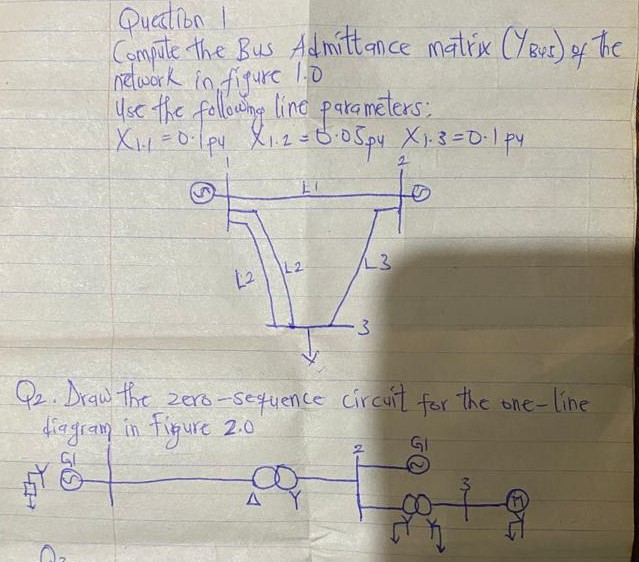 Question 1
Compute the Bus Admittance matrix (YBus) of the
network in figure 1.0
Use the following line parameters:
X1.1 = 0.1pu X1.2 = 0.05pu X1.3 = 0.1 pu
1 2
L1
L2 L2 L3
3
Q2. Draw the zero-sequence circuit for the one-line
diagram in Figure 2.0
G1 2 G1
Y 3
Δ Y M
Y Y Y